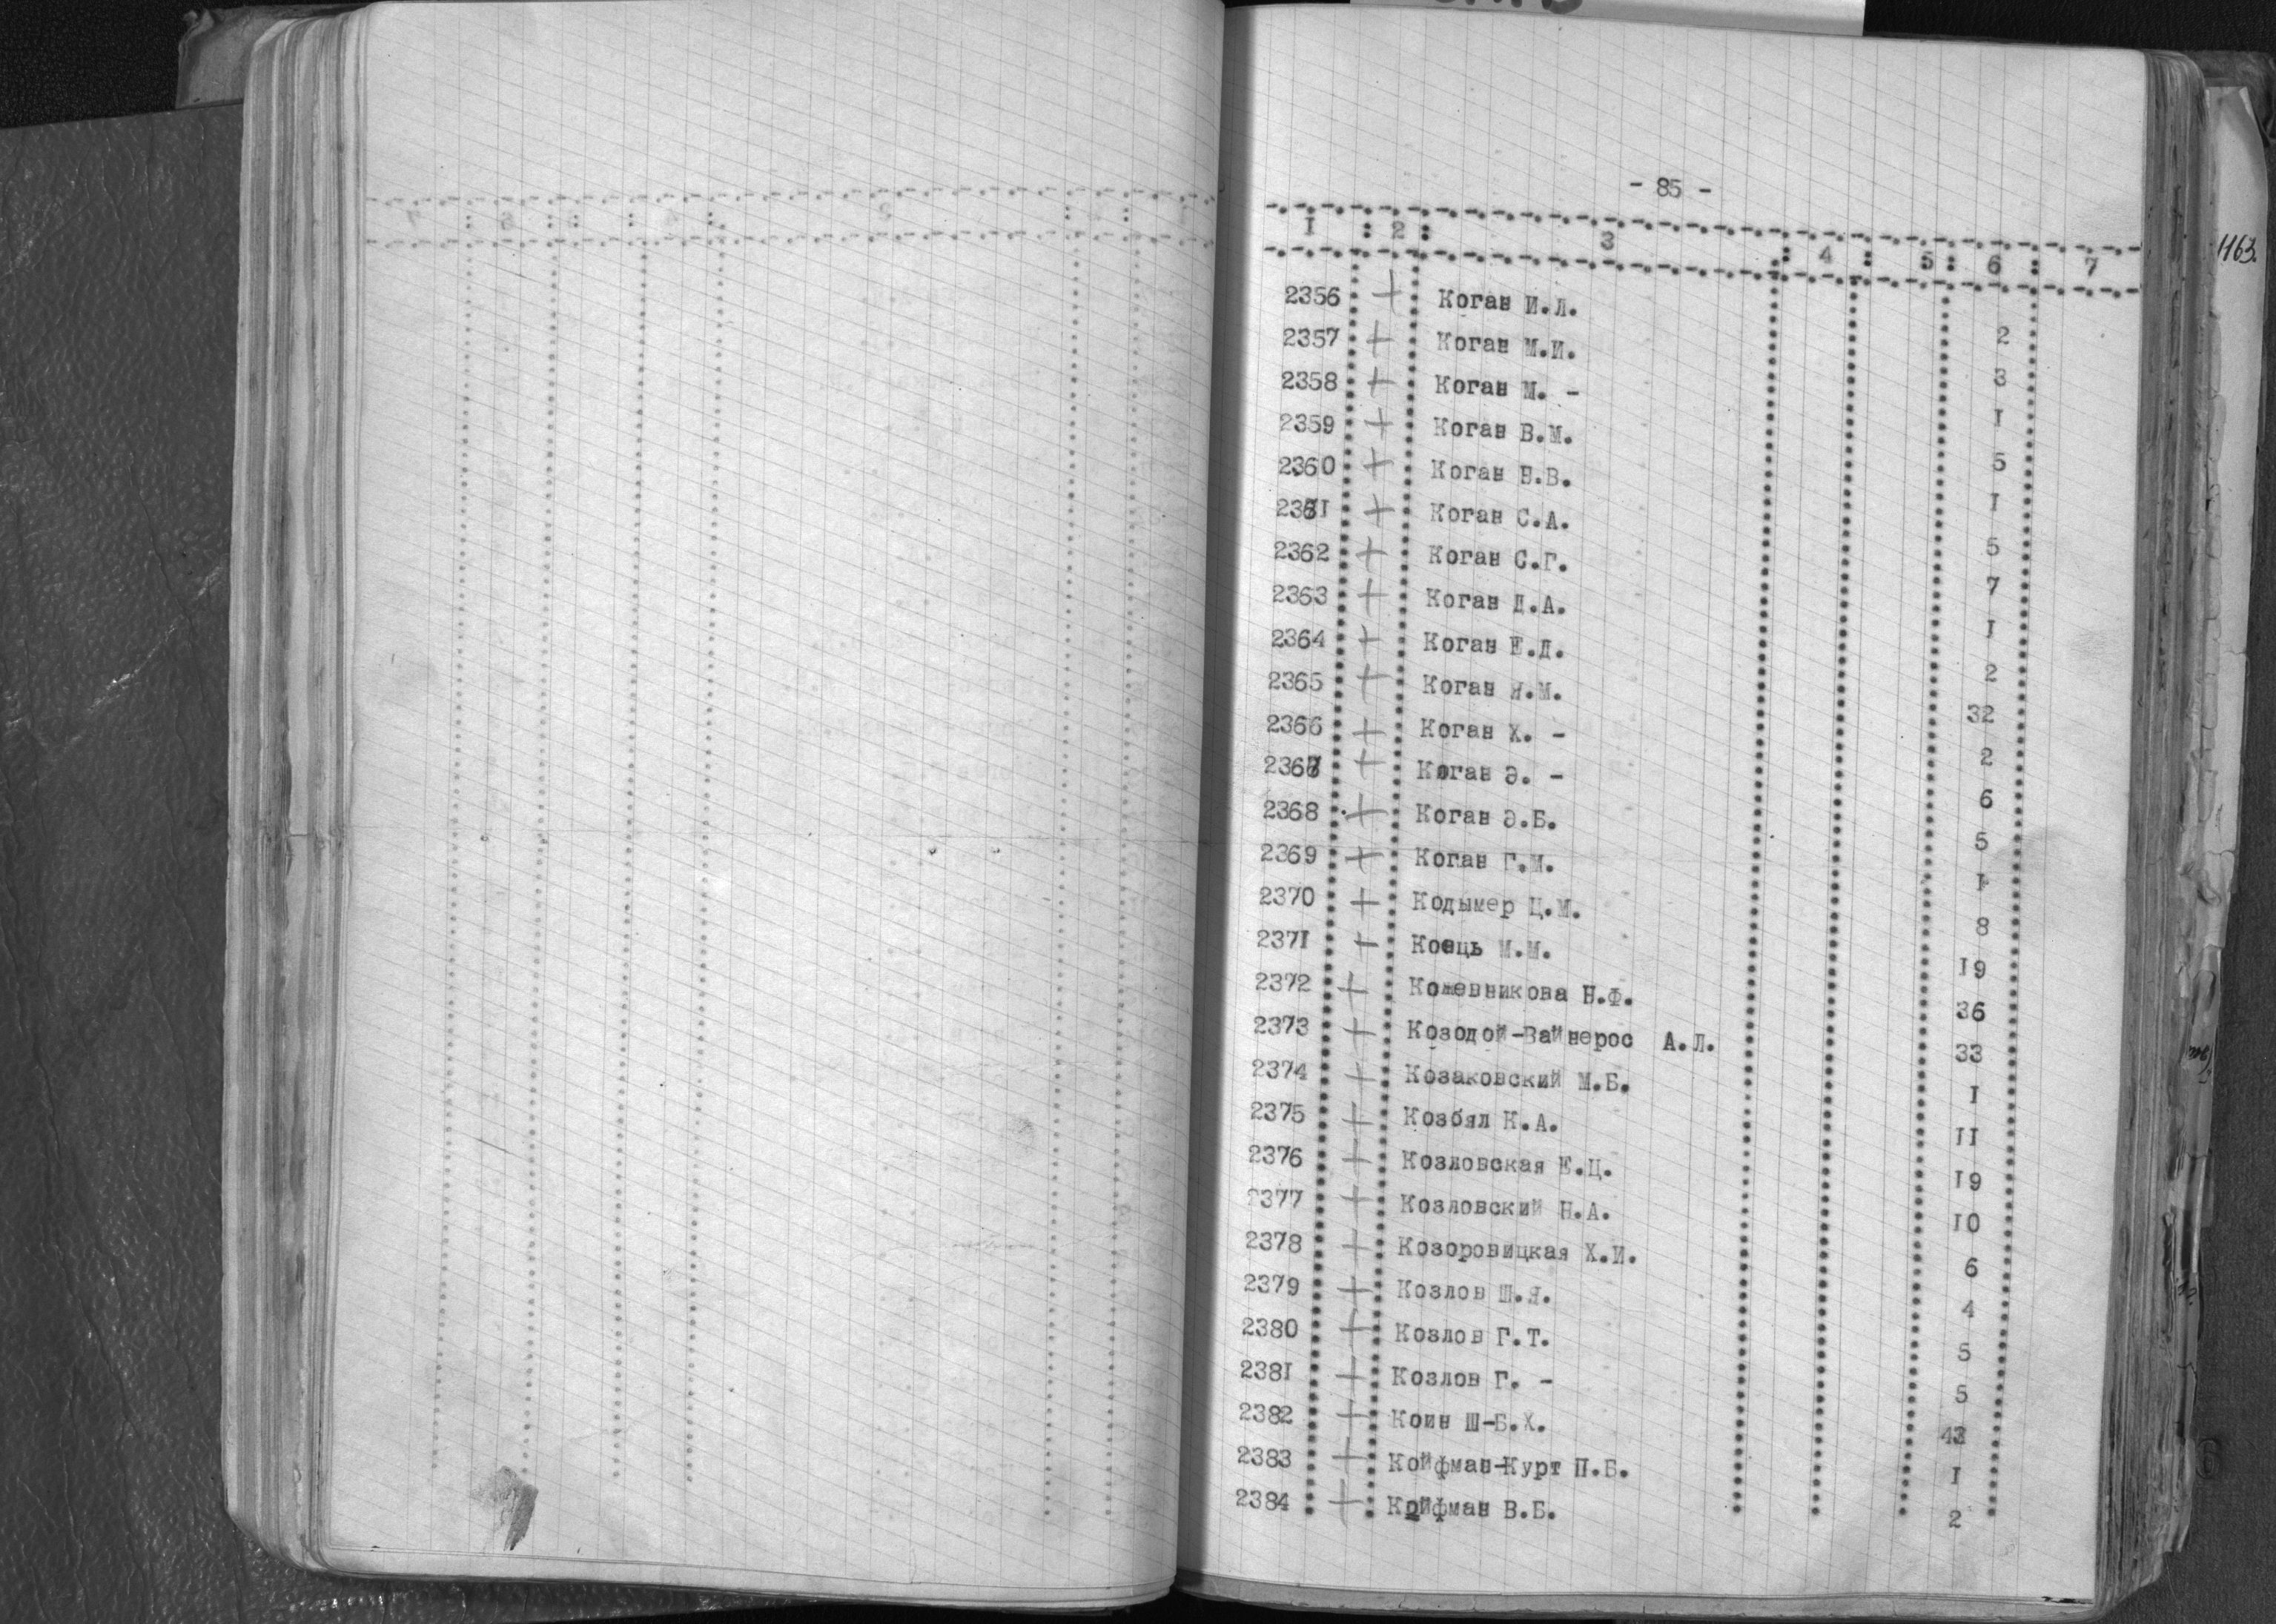 - 85 -
I : 2 : 3 : 4 : 5 : 6 : 7
1163.
2356 + Коган И.Л. 2
2357 + Коган М.И. 3
2358 + Коган М. - I
2359 + Коган В.М. 5
2360 + Коган Н.В. I
2361 + Коган С.А. 5
2362 + Коган С.Г. 7
2363 + Коган Д.А. I
2364 + Коган Е.Д. 2
2365 + Коган Я.М. 32
2366 + Коган Х. - 2
2367 + Коган Э. - 6
2368 + Коган Э.Б. 5
2369 + Коган Г.М. I
2370 + Кодымер Ц.М. 8
2371 + Коець М.М. I9
2372 + Кожевникова Н.Ф. 36
2373 + Козодой-Вайнерос А.Л. 33
2374 + Козаковский М.Б. I
2375 + Козбял К.А. II
2376 + Козловская Е.Ц. I9
2377 + Козловский Н.А. I0
2378 + Козоровицкая Х.И. 6
2379 + Козлов Ш.Я. 4
2380 + Козлов Г.Т. 5
238I + Козлов Г. - 5
2382 + Коин Ш-Б.Х. 43
2383 + Койфман-Курт П.Б. I
2384 + Койфман В.Б. 2